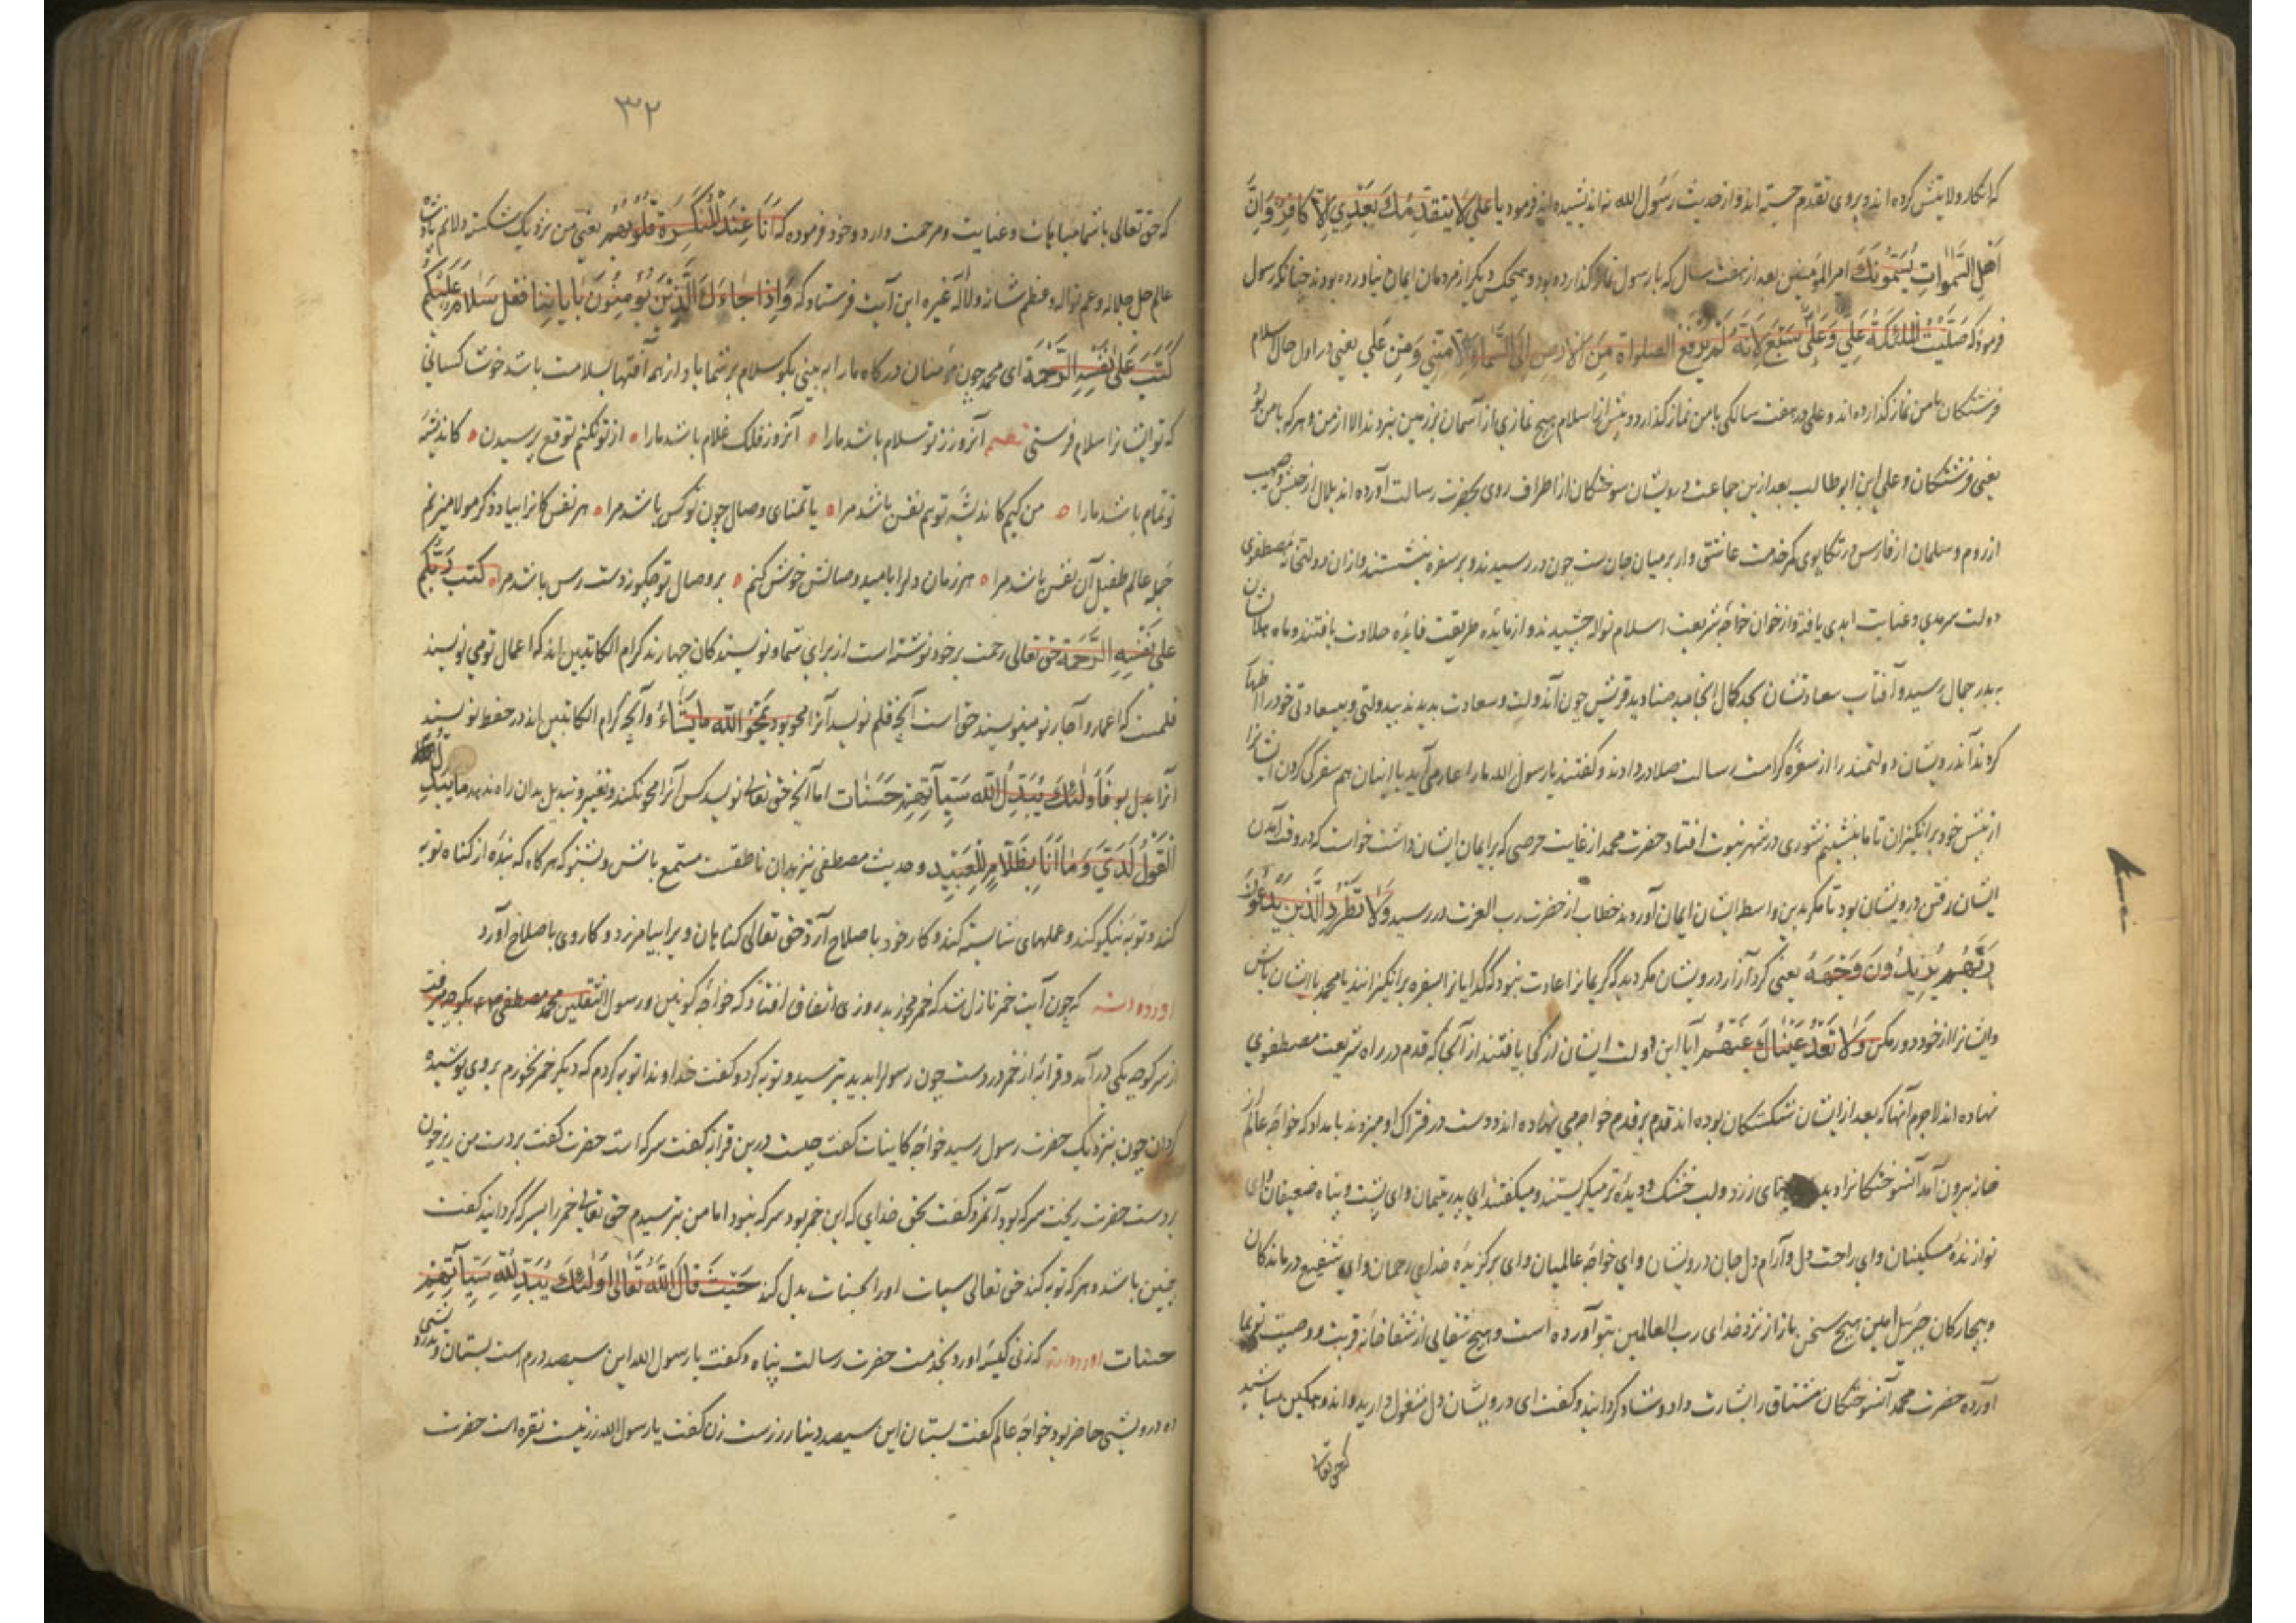 که انکار ولایتش کرده اند و بروی تقدم جسته اند و از حدیث رسول الله نه اندیشیده اند فرمود یا علي لا یتقدمك بعدي الا کافر وان
اهل السموات یسمونك امیر المؤمنین بعد از هفت سال که با رسول نماز گذارده بود و هیچکس دیگر از مردمان ایمان نیاورده بودند چنانکه رسول
فرمود که صلیت الملئکة علي وعلی علی سبع لانه لم یرفع الصلواة من الارض الی السماء الا مني ومن علي یعنی در اول حال اسلام
فرشتگان با من نماز گذارده اند و علی در هفت سالگی با من نماز گذارد و پیش از اسلام هیچ نمازی از آسمان بر زمین نبردند الا از من و هر که با من بود
یعنی فرشتگان و علي ابن ابو طالب بعد ازین جماعت درویشان سوختگان از اطراف روی بحضرت رسالت آورده اند بلال از حبش و صهیب
از روم و سلمان از فارس در تکاپوی کمر خدمت عاشق وار بر میان جان بست چون در رسیدند و بر سفره بنشستند و از ان دولتخانه مصطفوی
دولت سرمدی و عنایت ابدی یافته و از خوان خواجه شریعت اسلام نواله چشیدند و از مایده طریقت فایده حلاوت یافتند و ماه جلالشان
به بدر جمال رسید و آفتاب سعادتشان بحد کمال انجامید صنادید قریش چون آن دولت و سعادت بدیدند بیدولتی و بیسعادتی خود را اظهار
کردند آن درویشان دولتمند را از سفره کرامت رسالت صلا در دادند و گفتند یا رسول الله ما را عار می آید با اینان هم سفرگی کردن ایشانرا
از پیش خود برانگیزان تا ما بنشینیم شوری در شهر نبوت افتاد حضرت محمد از غایت حرصی که بر ایمان ایشان داشت خواست که در وقت آمدن
ایشان رفتن درویشان بود تا مگر بدین واسطه ایشان ایمان آورند خطاب از حضرت رب العزت در رسید ولا تطرد الذین یدعون
ربهم یریدون وجهه یعنی گرد آزار درویشان مگردید که کریمانرا عادت نبود که گدایانرا از سفره برانگیزانند یا محمد با ایشان باش
و ایشانرا از خود دور مکن ولا تعد عیناك عنهم آیا این دولت ایشان از کجا یافتند از آنجا که قدم در راه شریعت مصطفوي
نهاده اند لاجرم آنها که بعد از ایشان شکستگان بوده اند قدم بر قدم خواجه می نهاده اند و دست در فتراک او میزدند بامداد که خواجه عالم از
خانه بیرون آمد آن سوختگانرا دید زرد و لب خشک و دیده تر میگریستند و میگفتند ای پدر یتیمان و ای پشت و پناه ضعیفان و ای
نوازنده مسکینان و ای راحت دل و آرام دل و جان درویشان و ای خواجه عالمیان و ای برگزیده خدای رحمان و ای شفیع درماندگان
و بیچارگان جبرئیل امین هیچ سخن باز از نزد خدای رب العالمین بتو آورده است و هیچ شفایی از شفاخانه قربت و وصیت تو بما
آورده حضرت محمد آن سوختگان مشتاق را بشارت داد و شاد گردانید و گفت ای درویشان دل مشغول دارید و اندوهگین مباشید
که حق تعالی
۳۲
که حق تعالی با شما مباهات و عنایت و مرحمت دارد و خود فرموده که انا عند المنکسرة قلوبهم یعنی من نزدیک شکسته دلانم پادشاه
عالم جل جلاله و عم نواله و عظم شانه ولا اله غیره این آیت فرستاد که واذا جاءك الذین یؤمنون بایاتنا فقل سلام علیکم
کتب علی نفسه الرحمة ای محمد چون مؤمنان درگاه ما را به بینی بگو سلام بر شما باد از همه آفتها بسلامت باشد خوشا کسانی
که تو ایشانرا سلام فرستی شعر آنروز ز تو سلام باشد ما را ه آنروز فلک غلام باشد ما را ه از تو نکنم توقع پرسیدن ه کاندیشه
تو تمام باشد ما را ه من کیم کاندیشه تو هم نفس باشد مرا ه یا تمنای وصال چون تو کس باشد مرا ه هر نفس کانرا بیاد ذکر مولا میزنم
جمله عالم طفیل آن نفس باشد مرا ه هر زمان دلرا بامید وصالش خوش کنم ه بر وصال تو چگونه دست رس باشد مرا ه کتب ربکم
علی نفسه الرحمة حق تعالی رحمت بر خود نوشته است از برای شما و نویسندگان چهارند کرام الکاتبین اند که اعمال تو می نویسند
قلمست که اعمار و آجار تو مینویسند حق است آنچه قلم نویسد آنرا محو بود یمحو الله ما یشاء و آنچه کرام الکاتبین اند در حفظ نویسند
آنرا بدل بود فاولئك یبدل الله سیآتهم حسنات اما آنچه حق تعالی نویسد کس آنرا محو نکند و تغییر و تبدیل بدان راه ندهد ما یبدل
القول لدي وما انا بظلام للعبید و حدیث مصطفی نیز بدان ناطقست مستمع باش و بشنو که هرگاه که بنده از گناه توبه
کند و توبه نیکو کند و عملهای شایسته کند و کار خود باصلاح آرد حق تعالی گناهان ویرا بیامرزد و کار وی باصلاح آورد
آورده اند که چون آیت خمر نازل شد که خمر مخورید روزی اتفاق افتاد که خواجه کونین و رسول الثقلین محمد مصطفی بکوچه میرفت
از سر کوچه یکی در آمد و قرابه از خمر در دست چون رسولرا بدید بترسید و توبه کرد و گفت خداوندا توبه کردم که دیگر خمر نخورم بر وی پوشیده
گردان چون بنزدیک حضرت رسول رسید خواجه کاینات گفت چیست درین قرابه گفت سرکه است حضرت گفت بر دست من ریز چون
بر دست حضرت ریخت سرکه بود آنمرد گفت بحق خدای که این خمر بود سرکه نبود اما من بترسیدم حق تعالی خمر را سرکه گردانید گفت
چنین باشد و هر که توبه کند حق تعالی سیات او را بحسنات بدل کند حیث قال الله تعالی اولئك یبدل الله سیآتهم
حسنات آورده اند که زنی کیسه آورد بخدمت حضرت رسالت پناه و گفت یا رسول الله این سیصد درم است بستان و بدرویشی
ده درویشی حاضر بود خواجه عالم گفت بستان این سیصد دینار زرست زن گفت یا رسول الله زر نیست نقره است حضرت